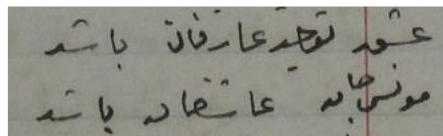 عشق توحید عارفان باشد
مونس جان عاشقان باشد